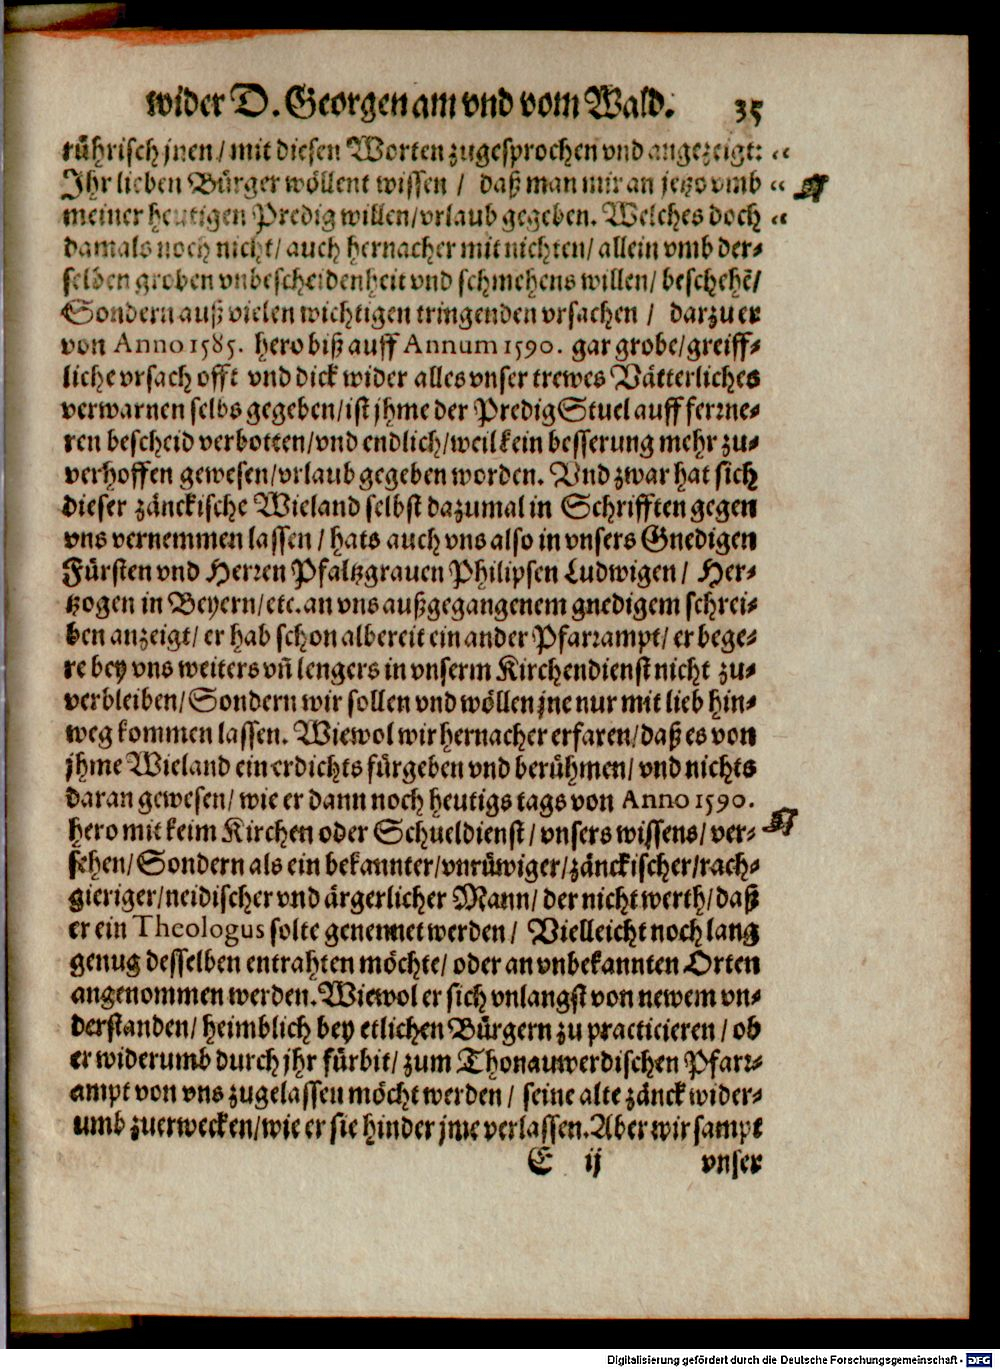 wider D. Georgen am vnd vom Wald. 35
rührisch jnen / mit diesen Worten zugesprochen vnd angezeigt: “
Ihr lieben Bürger wöllent wissen / daß man mir an jetzo vmb “
meiner heutigen Predig willen / vrlaub gegeben. Welches doch “
damals noch nicht / auch hernacher mit nichten / allein vmb der⸗
selben groben vnbescheidenheit vnd schmehens willen / beschehẽ /
Sondern auß vielen wichtigen tringenden vrsachen / darzu er
von Anno 1585. hero biß auff Annum 1590. gar grobe / greiff⸗
liche vrsach offt vnd dick wider alles vnser trewes Vätterliches
verwarnen selbs gegeben / ist jhme der Predig Stuel auff ferrne⸗
ren bescheid verbotten / vnd endlich / weil kein besserung mehr zu⸗
verhoffen gewesen / vrlaub gegeben worden. Vnd zwar hat sich
dieser zänckische Wieland selbst dazumal in Schrifften gegen
vns vernemmen lassen / hats auch vns also in vnsers Gnedigen
Fürsten vnd Herren Pfaltzgrauen Philipsen Ludwigen / Her⸗
tzogen in Beyern / etc. an vns außgegangenem gnedigem schrei⸗
ben anzeigt / er hab schon albereit ein ander Pfarrampt / er bege⸗
re bey vns weiters vñ lengers in vnserm Kirchendienst nicht zu⸗
verbleiben / Sondern wir sollen vnd wöllen jne nur mit lieb hin⸗
weg kommen lassen. Wiewol wir hernacher erfaren / daß es von
jhme Wieland ein erdichts fürgeben vnd berühmen / vnd nichts
daran gewesen / wie er dann noch heutigs tags von Anno 1590.
hero mit keim Kirchen oder Schueldienst / vnsers wissens / ver⸗
sehen / Sondern als ein bekannter / vnrüwiger / zänckischer / rach⸗
gieriger / neidischer vnd ärgerlicher Mann / der nicht werth / daß
er ein Theologus solte genennet werden / Vielleicht noch lang
genug desselben entrahten möchte / oder an vnbekannten Orten
angenommen werden. Wiewol er sich vnlangst von newem vn⸗
derstanden / heimblich bey etlichen Bürgern zu practicieren / ob
er widerumb durch jhr fürbit / zum Thonauwerdischen Pfarr⸗
ampt von vns zugelassen möcht werden / seine alte zänck wider⸗
umb zuerwecken / wie er sie hinder jme verlassen. Aber wir sampt
E ij vnser
Digitalisierung gefördert durch die Deutsche Forschungsgemeinschaft - DFG